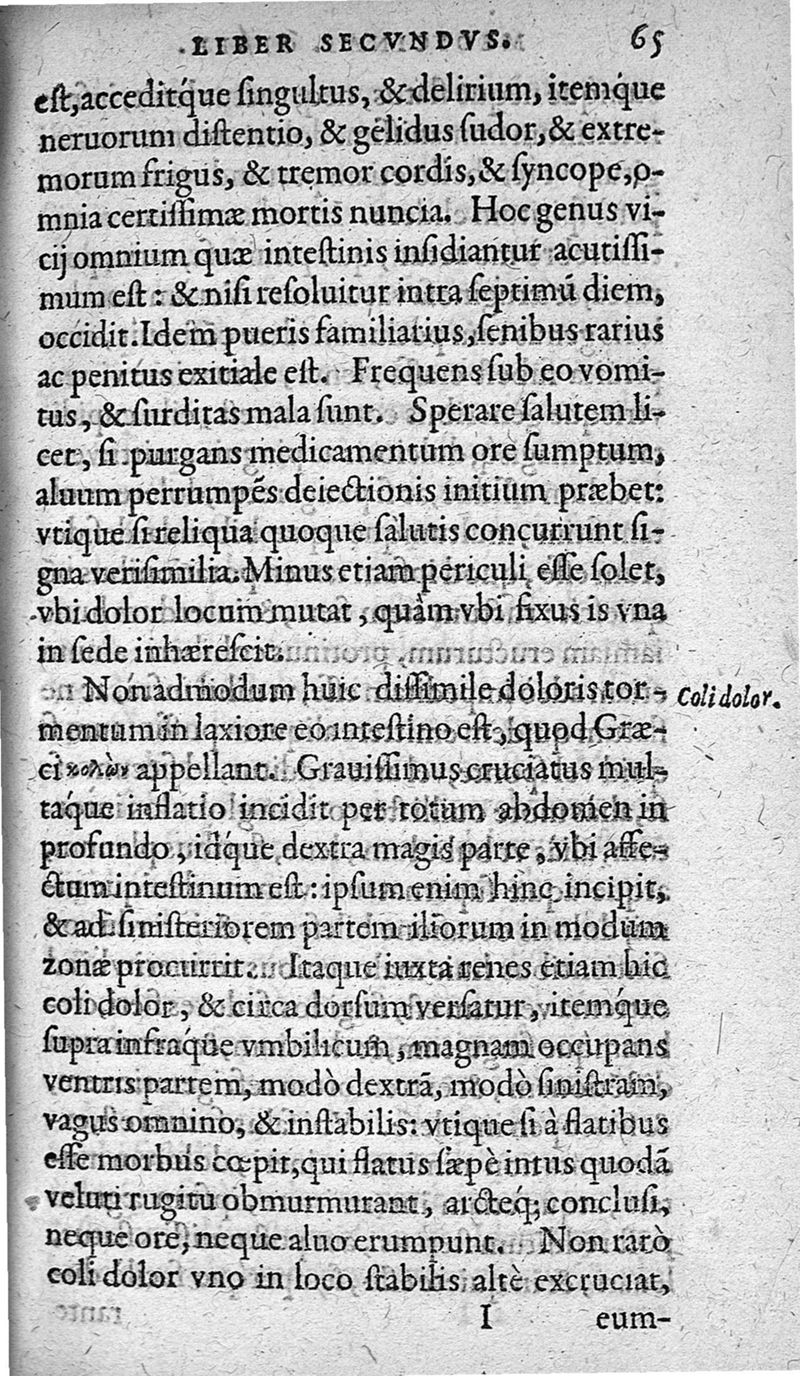 LIBER SECVNDVS. 65
est, acceditq́ue singultus, & delirium, itemq́ue
neruorum distentio, & gelidus sudor, & extre-
morum frigus, & tremor cordis, & syncope, o-
mnia certissimæ mortis nuncia. Hoc genus vi-
cij omnium quæ intestinis insidiantur acutissi-
mum est : & nisi resoluitur intra septimũ diem,
occidit. Idem pueris familiarius, senibus rarius
ac penitus exitiale est. Frequens sub eo vomi-
tus, & surditas mala sunt. Sperare salutem li-
cet, si purgans medicamentum ore sumptum,
aluum perrumpẽs deiectionis initium præbet:
vtique si reliqua quoque salutis concurrunt si-
gna verisimilia. Minus etiam periculi esse solet,
vbi dolor locum mutat, quàm vbi fixus is vna
in sede inhærescit.
Non admodum huic dissimile doloris tor-
Coli dolor.
mentum in laxiore eo intestino est, quod Græ-
ci κολὸν appellant. Grauissimus cruciatus mul-
taq́ue inflatio incidit per totum abdomen in
profundo, idq́ue dextra magis parte, vbi affe-
ctum intestinum est : ipsum enim hinc incipit,
& ad sinisteriorem partem iliorum in modum
zonæ procurrit. Itaque iuxta renes etiam hic
coli dolor, & circa dorsum versatur, itemq́ue
supra infraq́ue vmbilicum, magnam occupans
ventris partem, modò dextrã, modò sinistram,
vagus omnino, & instabilis: vtique si à flatibus
esse morbus cœpit, qui flatus sæpè intus quodã
veluti rugitu obmurmurant, arcteq́; conclusi,
neque ore, neque aluo erumpunt. Non rarò
coli dolor vno in loco stabilis altè excruciat,
I eum-